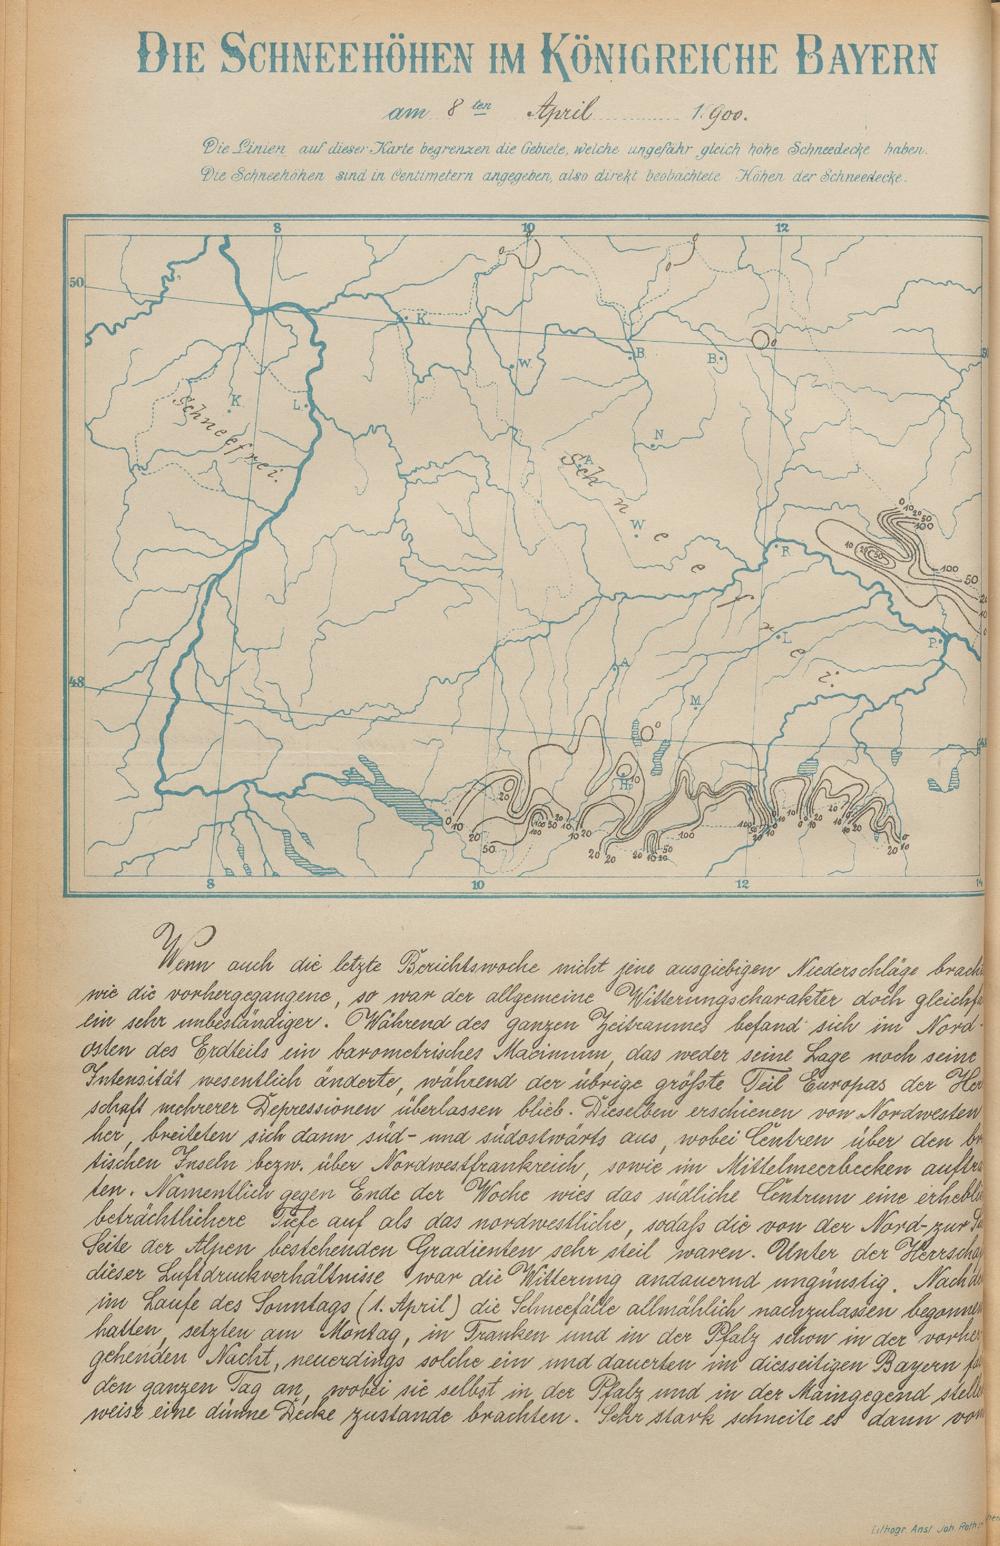 DIE SCHNEEHÖHEN IM KÖNIGREICHE BAYERN
am 8 ten April 1900.
Die Linien auf dieser Karte begrenzen die Gebiete, welche ungefähr gleich hohe Schneedecke haben.
Die Schneehöhen sind in Centimetern angegeben, also direkt beobachtete Höhen der Schneedecke.
8 10 12
50
K. W. B. B.
K. L. N
Schneefrei.
Schneefrei.
A. W. R. L. P.
48
A. M.
Hp
0 10 20 50 100
8 10 12 14
Wenn auch die letzte Berichtswoche nicht jene ausgiebigen Niederschläge brach
wie die vorhergegangene, so war der allgemeine Witterungscharakter doch gleichf
ein sehr unbeständiger. Während des ganzen Zeitraumes befand sich im Nord-
osten des Erdteils ein barometrisches Maximum, das weder seine Lage noch seine
Intensität wesentlich änderte, während der übrige größte Teil Europas der Her
schaft mehrerer Depressionen überlassen blieb. Dieselben erschienen von Nordwesten
her, breiteten sich dann süd- und südostwärts aus, wobei Centren über den br
tischen Inseln bezw. über Nordwestfrankreich, sowie im Mittelmeerbecken auftra
ten. Namentlich gegen Ende der Woche wies das südliche Centrum eine erhebli
beträchtlichere Tiefe auf als das nordwestliche, sodaß die von der Nord- zur Sü
Seite der Alpen bestehenden Gradienten sehr steil waren. Unter der Herrscha
dieser Luftdruckverhältnisse war die Witterung andauernd ungünstig. Nachde
im Laufe des Sonntags (1. April) die Schneefälle allmählich nachzulassen begonnen
hatten, setzten am Montag, in Franken und in der Pfalz schon in der vorher
gehenden Nacht, neuerdings solche ein und dauerten im diesseitigen Bayern fa
den ganzen Tag an, wobei sie selbst in der Pfalz und in der Maingegend stelle
weise eine dünne Decke zustande brachten. Sehr stark schneite es dann vom
Lithogr. Anst. Joh. Roth